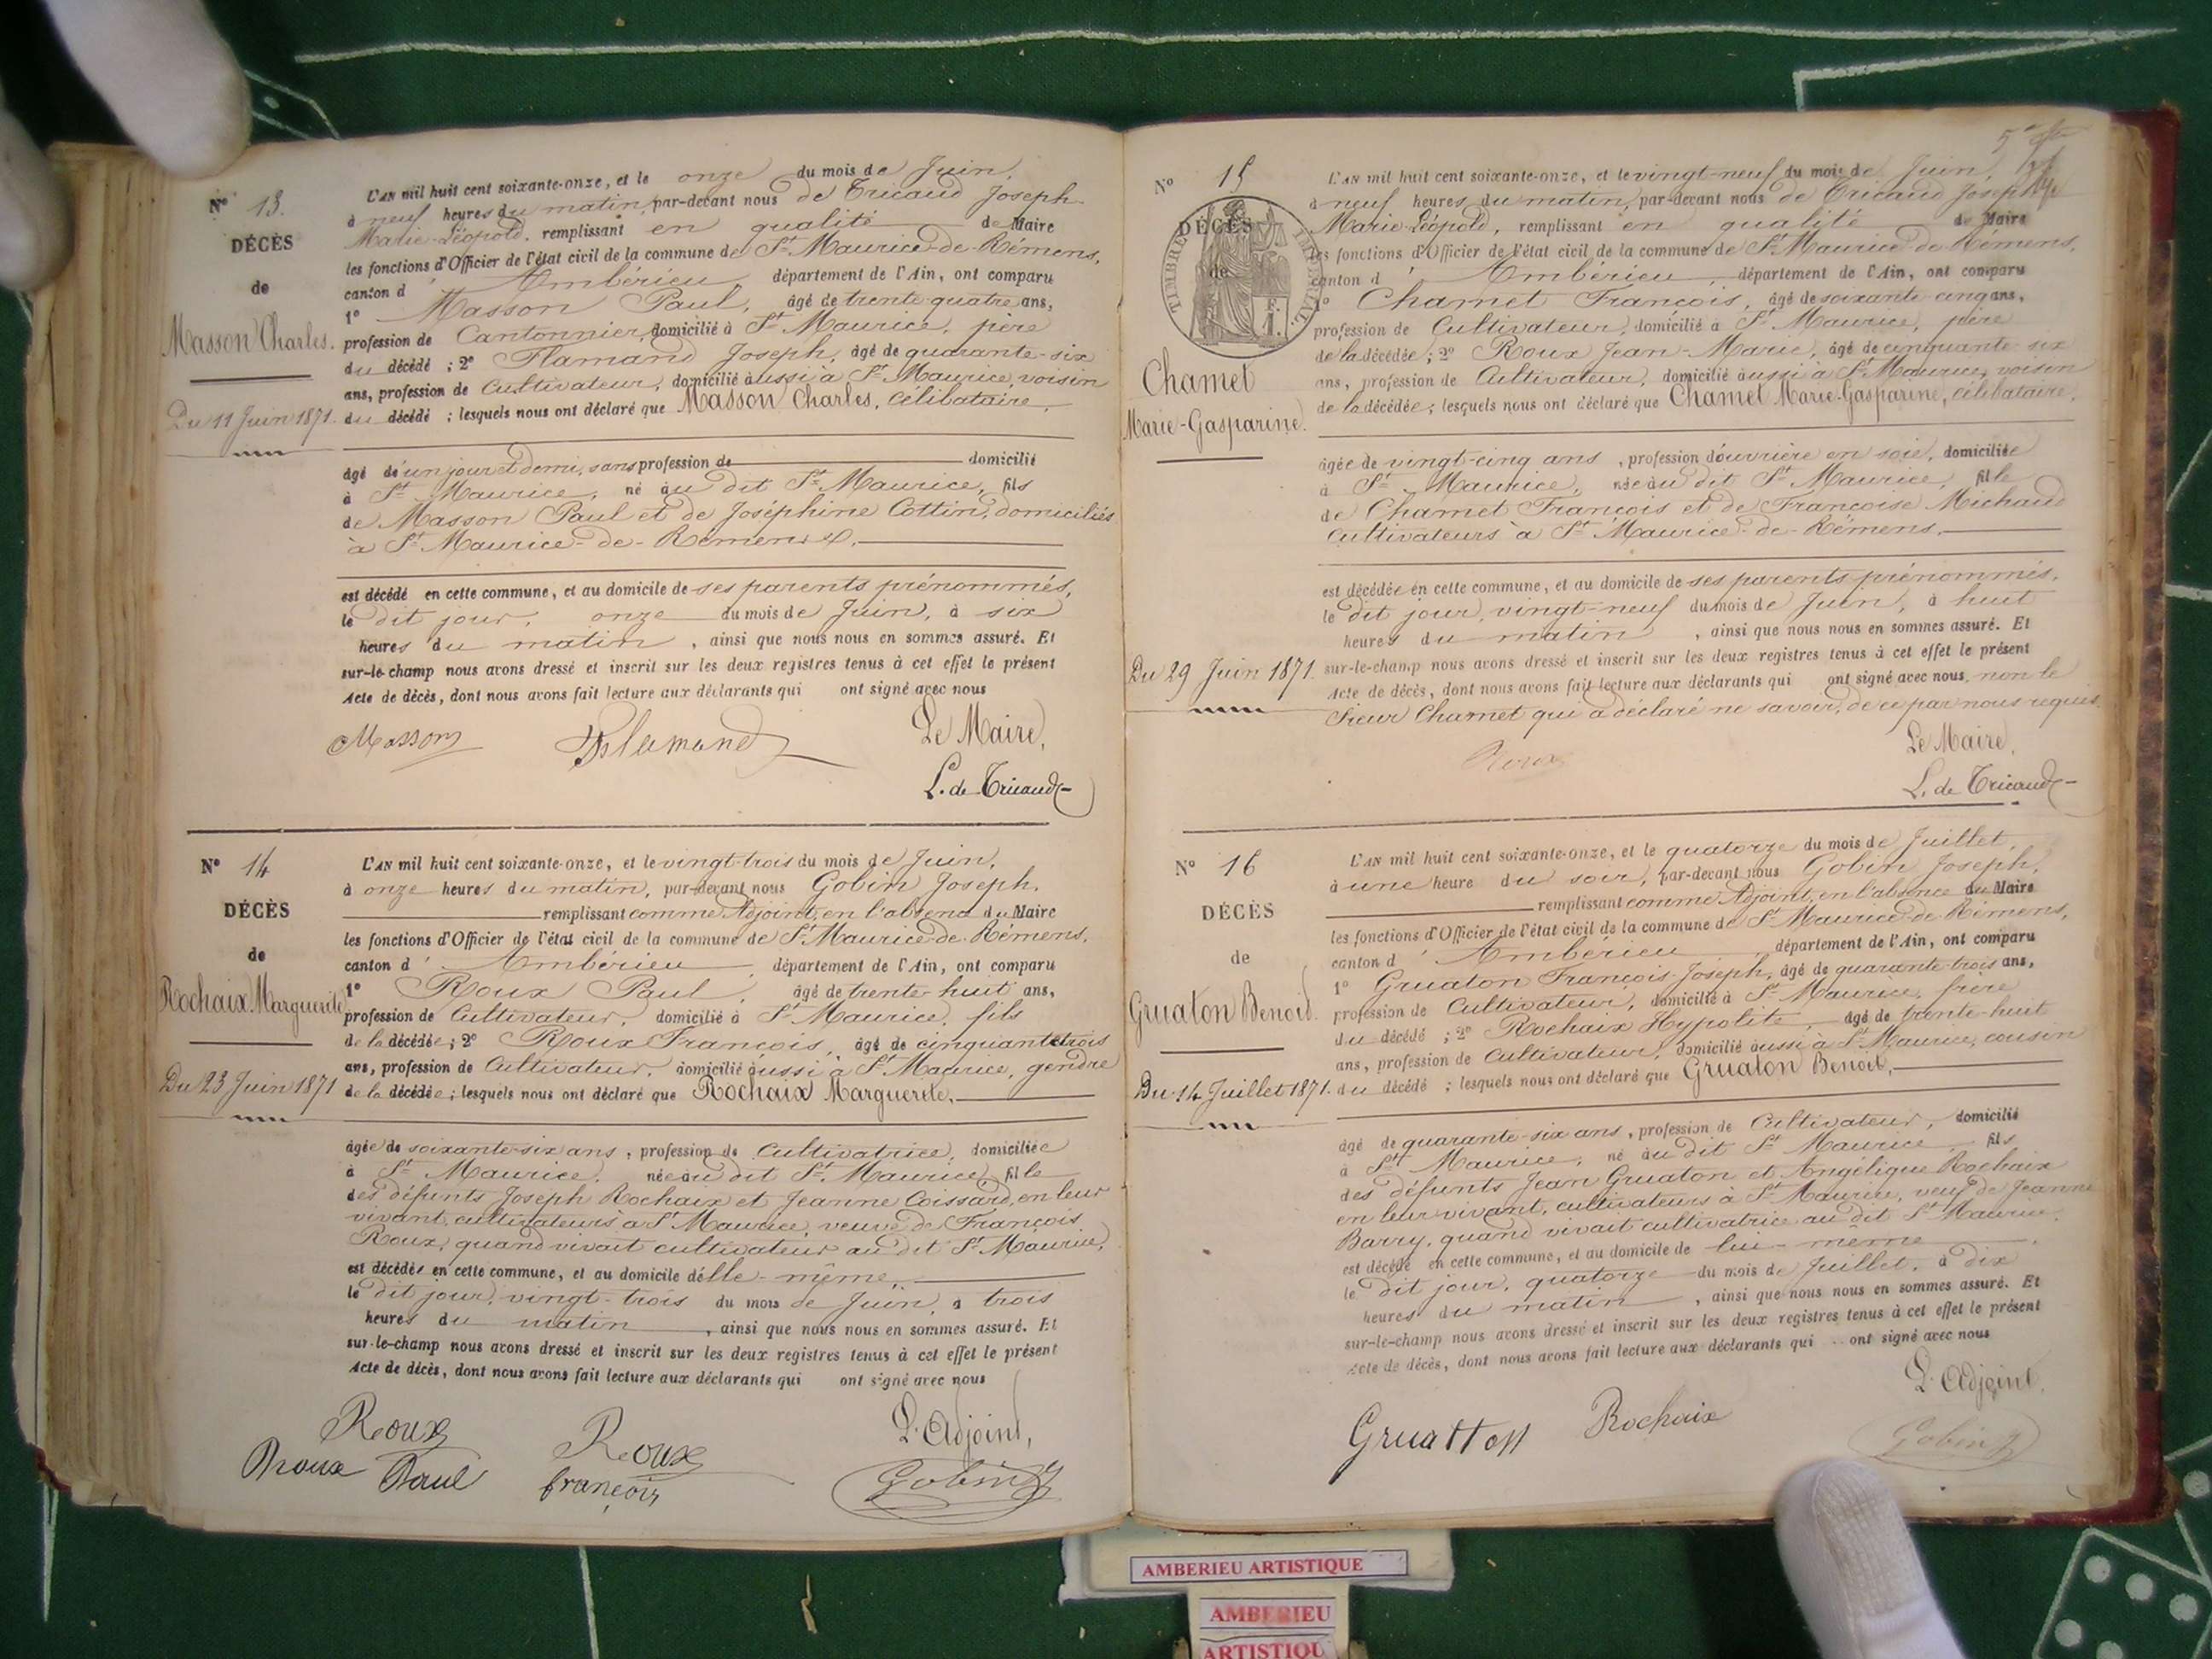 N° 13.
DÉCÈS
de
Masson Charles.
Du 11 Juin 1871.
L'AN mil huit cent soixante-onze, et le onze du mois de Juin,
à neuf heures du matin, par-devant nous de Tricaud Joseph
Marie-Léopold, remplissant en qualité de Maire
les fonctions d'Officier de l'état civil de la commune de St Maurice-de-Rémens,
canton d'Ambérieu, département de l'Ain, ont comparu
1° Masson Paul, âgé de trente quatre ans,
profession de Cantonnier, domicilié à St Maurice, père
du décédé ; 2° Flamand Joseph, âgé de quarante-six
ans, profession de Cultivateur, domicilié aussi à St Maurice, voisin
du décédé ; lesquels nous ont déclaré que Masson Charles, Célibataire,
âgé d'un jour et demi, sans profession de domicilié
à St Maurice, né au dit St Maurice, fils
de Masson Paul et de Joséphine Cottin, domiciliés
à St Maurice-de-Rémens.
est décédé en cette commune, et au domicile de ses parents prénommés,
le dit jour, onze du mois de Juin, à six
heures du matin, ainsi que nous nous en sommes assuré. Et
sur-le-champ nous avons dressé et inscrit sur les deux registres tenus à cet effet le présent
Acte de décès, dont nous avons fait lecture aux déclarants qui ont signé avec nous
Masson Flamand Le Maire,
L. de Tricaud
N° 14
DÉCÈS
de
Rochaix Marguerite
Du 23 Juin 1871
L'AN mil huit cent soixante-onze, et le vingt-trois du mois de Juin,
à onze heures du matin, par-devant nous Gobin Joseph,
remplissant comme Adjoint, en l'absence du Maire
les fonctions d'Officier de l'état civil de la commune de St Maurice-de-Rémens,
canton d'Ambérieu, département de l'Ain, ont comparu
1° Roux Paul, âgé de trente-huit ans,
profession de Cultivateur, domicilié à St Maurice, fils
de la décédée ; 2° Roux François, âgé de cinquante trois
ans, profession de Cultivateur, domicilié aussi à St Maurice, gendre
de la décédée ; lesquels nous ont déclaré que Rochaix Marguerite,
âgée de soixante-six ans, profession de Cultivatrice, domiciliée
à St Maurice, née au dit St Maurice, fille
des défunts Joseph Rochaix et Jeanne Coissard, en leur
vivant, cultivateurs à St Maurice, veuve de François
Roux, quand vivait cultivateur au dit St Maurice,
est décédée en cette commune, et au domicile d'elle-même,
le dit jour, vingt-trois du mois de Juin, à trois
heures du matin, ainsi que nous nous en sommes assuré. Et
sur-le-champ nous avons dressé et inscrit sur les deux registres tenus à cet effet le présent
Acte de décès, dont nous avons fait lecture aux déclarants qui ont signé avec nous
Roux Roux L'Adjoint,
Paul françois Gobin
N° 15
DÉCÈS
de
TIMBRE IMPÉRIAL
1 F.
Chamet
Marie-Gasparine.
Du 29 Juin 1871.
L'AN mil huit cent soixante-onze, et le vingt-neuf du mois de Juin,
à neuf heures du matin, par-devant nous de Tricaud Joseph
Marie-Léopold, remplissant en qualité de Maire
les fonctions d'Officier de l'état civil de la commune de St Maurice-de-Rémens,
canton d'Ambérieu, département de l'Ain, ont comparu
1° Chamet François, âgé de soixante cinq ans,
profession de Cultivateur, domicilié à St Maurice, père
de la décédée ; 2° Roux Jean-Marie, âgé de cinquante-six
ans, profession de Cultivateur, domicilié aussi à St Maurice, voisin
de la décédée ; lesquels nous ont déclaré que Chamet Marie-Gasparine, célibataire,
âgée de vingt-cinq ans, profession d'ouvrière en soie, domiciliée
à St Maurice, née au dit St Maurice, fille
de Chamet François et de Françoise Michaud
cultivateurs à St Maurice-de-Rémens.
est décédée en cette commune, et au domicile de ses parents prénommés,
le dit jour, vingt-neuf du mois de Juin, à huit
heures du matin, ainsi que nous nous en sommes assuré. Et
sur-le-champ nous avons dressé et inscrit sur les deux registres tenus à cet effet le présent
Acte de décès, dont nous avons fait lecture aux déclarants qui ont signé avec nous, non le
Sieur Chamet qui a déclaré ne savoir, de ce par nous requis.
Roux Le Maire,
L. de Tricaud
N° 16
DÉCÈS
de
Gruaton Benoit.
Du 14 Juillet 1871.
L'AN mil huit cent soixante-onze, et le quatorze du mois de Juillet,
à une heure du soir, par-devant nous Gobin Joseph,
remplissant comme Adjoint, en l'absence du Maire
les fonctions d'Officier de l'état civil de la commune de St Maurice-de-Rémens,
canton d'Ambérieu, département de l'Ain, ont comparu
1° Gruaton François-Joseph, âgé de quarante-trois ans,
profession de Cultivateur, domicilié à St Maurice, frère
du décédé ; 2° Rochaix Hypolite, âgé de trente-huit
ans, profession de Cultivateur, domicilié aussi à St Maurice, cousin
du décédé ; lesquels nous ont déclaré que Gruaton Benoit,
âgé de quarante-six ans, profession de Cultivateur, domicilié
à St Maurice, né au dit St Maurice, fils
des défunts Jean Gruaton et Angélique Rochaix
en leur vivant, cultivateurs à St Maurice, veuf de Jeanne
Barry, quand vivait cultivatrice au dit St Maurice.
est décédé en cette commune, et au domicile de lui-même
le dit jour, quatorze du mois de Juillet, à dix
heures du matin, ainsi que nous nous en sommes assuré. Et
sur-le-champ nous avons dressé et inscrit sur les deux registres tenus à cet effet le présent
Acte de décès, dont nous avons fait lecture aux déclarants qui ont signé avec nous
L'Adjoint.
Gruatton Rochaix Gobin
AMBERIEU ARTISTIQUE
AMBERIEU
ARTISTIQU